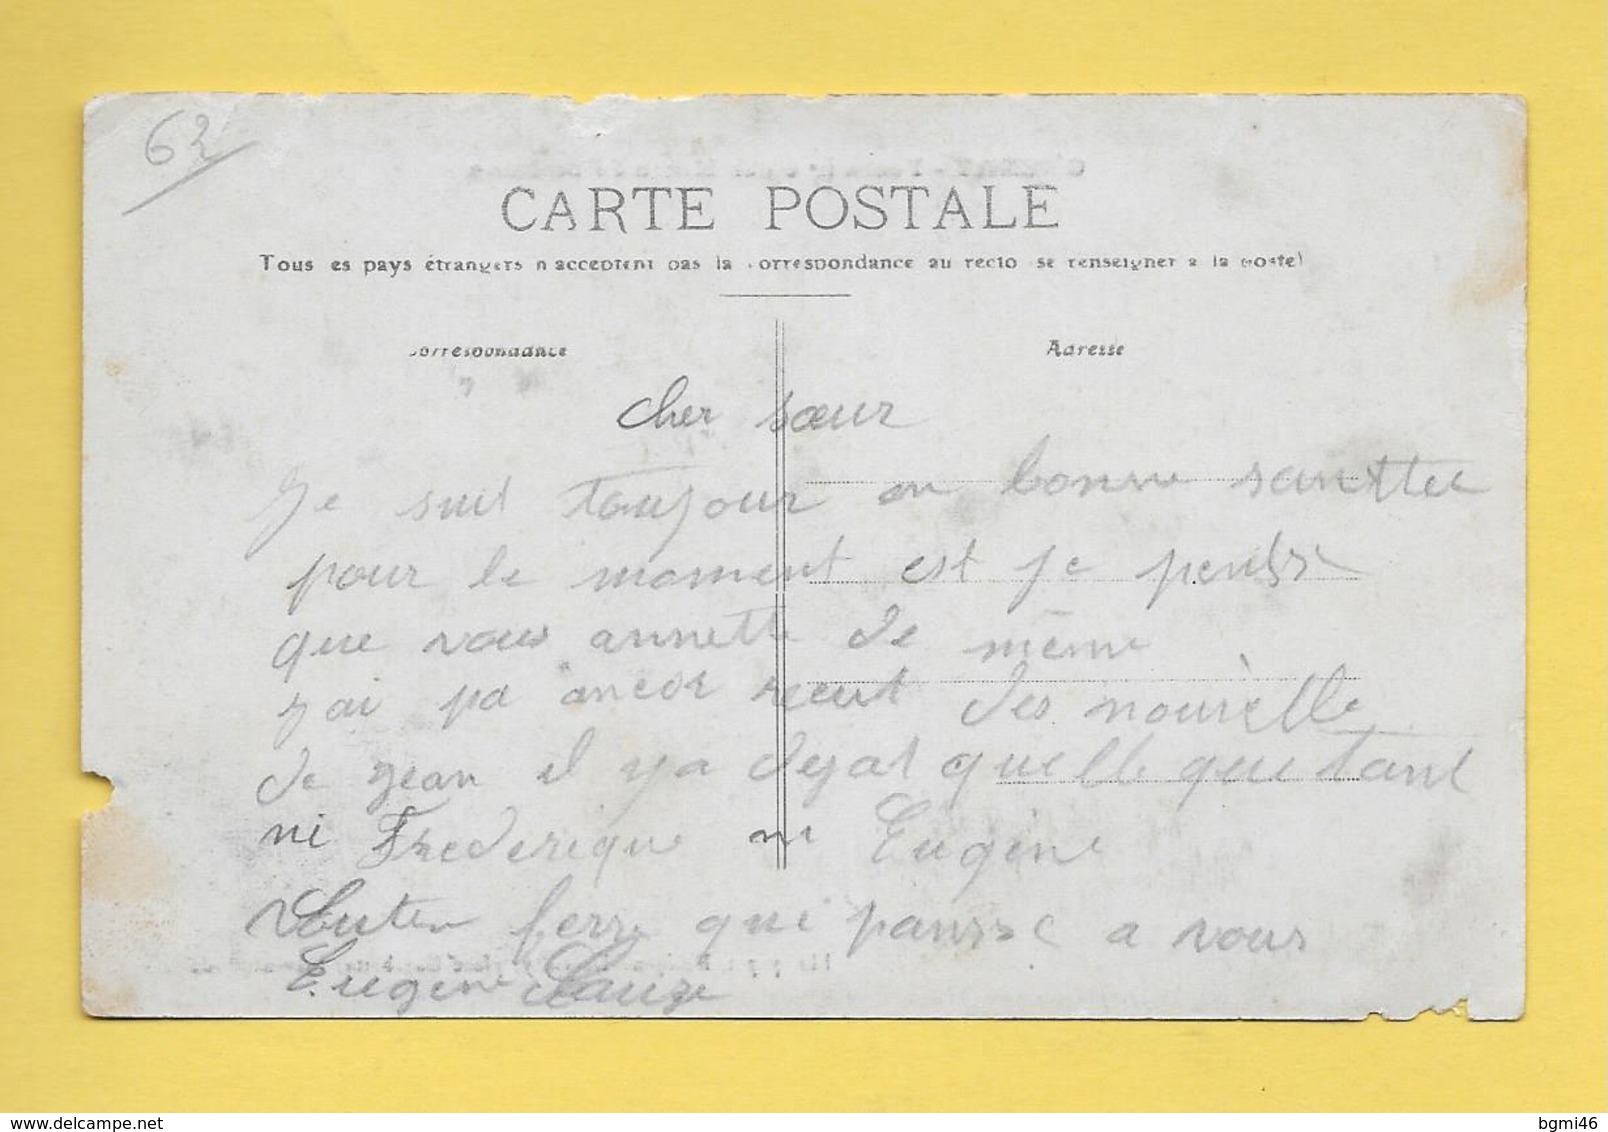 62
CARTE POSTALE
Tous es pays étrangers n acceptent pas la orrespondance au recto se renseigner a la poste)
orrespondance
Adresse
cher sœur
Je suit toujour en bonne santtee
pour le moment est je pensse
que vous annette de même
jai pa ancor recut des nouvelle
de jean il ya dejat quelle que tant
ni Frederique ni Eugène
qui pansse a vous
Eugène
bgmi46